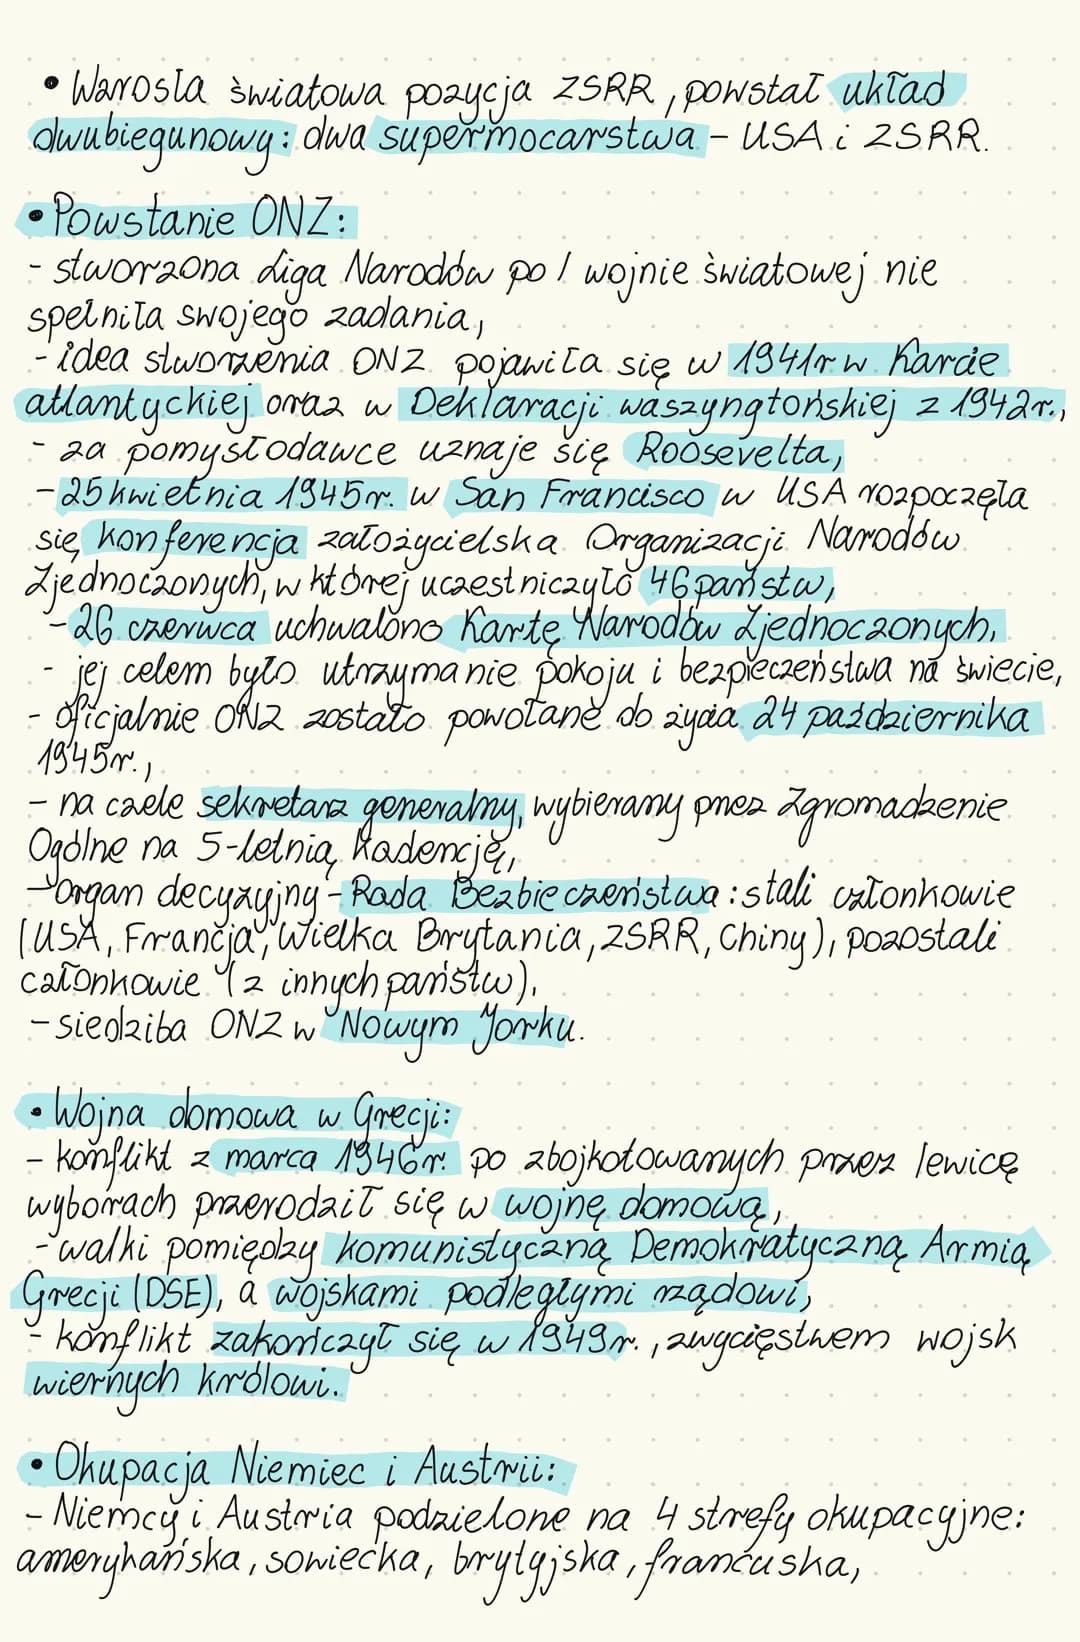 • Wzrosla światowa pozycja ZSRR, powstał układ
dwubiegunowy: dwa supermocarstwa - USA i ZSRR.
• Powstanie ONZ:
- stworzona Liga Narodów po I wojnie światowej nie
spełniła swojego zadania,
- idea stworzenia ONZ pojawiła się w 1941r w Karcie
atlantyckiej oraz w Deklaracji waszyngtońskiej z 1942r.,
- za pomysłodawce uznaje się Roosevelta,
- 25 kwietnia 1945r. w San Francisco w USA rozpoczęla
się konferencja założycielska Organizacji Narodów
Zjednoczonych, w której uczestniczyło 46 państw,
- 26 czerwca uchwalono Kartę Narodów Zjednoczonych,
- jej celem było utrzymanie pokoju i bezpieczeństwa na świecie,
- oficjalnie ONZ zostało powołane do życia 24 października
1945r.,
- na czele sekretarz generalny, wybierany przez Zgromadzenie
Ogólne na 5-letnią kadencję,
- organ decyzyjny - Rada Bezbieczeństwa: stali członkowie
(USA, Francja, Wielka Brytania, ZSRR, Chiny), pozostali
członkowie (z innych państw),
- siedziba ONZ w Nowym Jorku.
• Wojna domowa w Grecji:
- konflikt z marca 1946r. po zbojkotowanych przez lewicę
wyborach przerodził się w wojnę domową,
- walki pomiędzy komunistyczną Demokratyczną Armią
Grecji (DSE), a wojskami podległymi rządowi,
- konflikt zakończył się w 1949r., zwycięstwem wojsk
wiernych królowi.
• Okupacja Niemiec i Austrii:
- Niemcy i Austria podzielone na 4 strefy okupacyjne:
amerykańska, sowiecka, brytyjska, francuska,